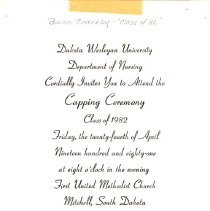 "Class of 82"
Dakota Wesleyan University
Department of Nursing
Cordially Invites You to Attend the
Capping Ceremony
Class of 1982
Friday, the twenty-fourth of April
Nineteen hundred and eighty-one
at eight o'clock in the evening
First United Methodist Church
Mitchell, South Dakota